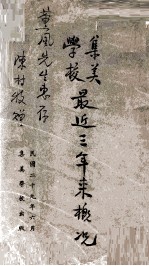 集美
學校
最近三年來概况
薰風先生惠存
陳村牧贈
民國二十九年六月
集美學校出版